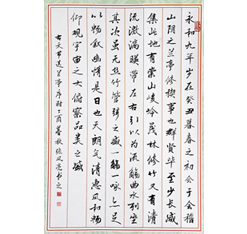 永和九年岁在癸丑暮春之初会于会稽
山阴之兰亭修禊事也群贤毕至少长咸
集此地有崇山峻岭茂林修竹又有清
流激湍映带左右引以为流觞曲水列坐
其次虽无丝竹管弦之盛一觞一咏亦足
以畅叙幽情是日也天朗气清惠风和畅
仰观宇宙之大俯察品类之盛
古文节选兰亭序时